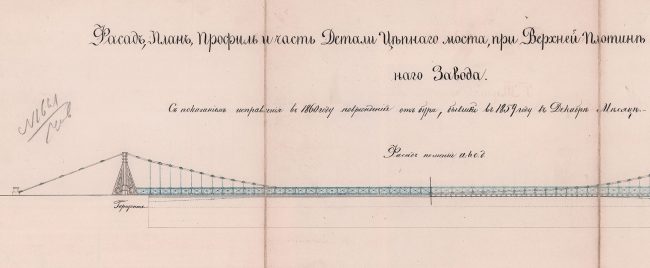 Фасадъ, Планъ, Профиль и часть Детали Цѣпнаго моста, при Верхней Плотинѣ
наго Завода.
Съ показаніемъ исправленія въ 1860 году поврежденій отъ бури, бывшей въ 1859 году въ Декабрѣ Мѣсяцѣ
Фасадъ по линіи a.b.c.d
Горизонтъ